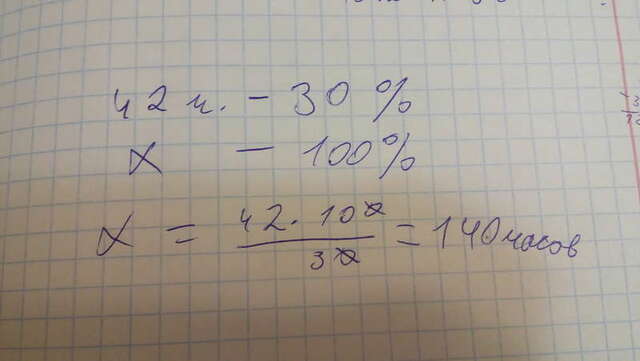 42 ч. – 30 %
x – 100 %
x = 42 · 100 / 30 = 140 часов